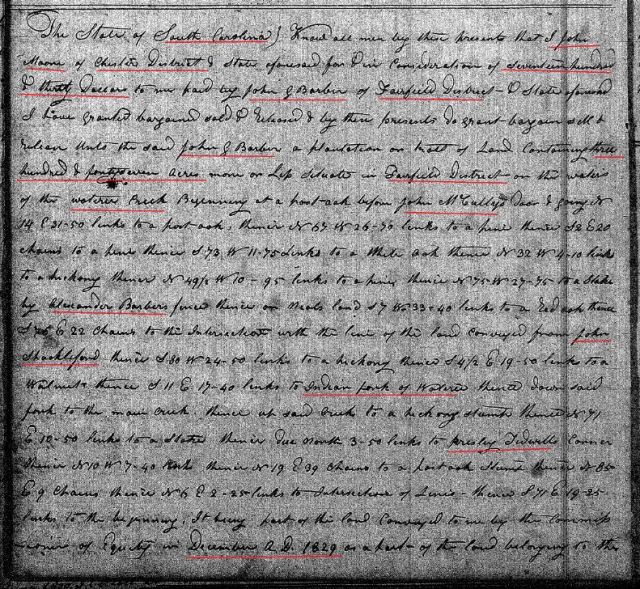 The State of South Carolina } Know all men by these presents that I John
Moore of Chester District & State aforesaid for & in Consideration of seventeen hundred
& thirty Dollars to me paid by John G Barber of Fairfield District & State aforesaid
I have granted bargained sold & Released & by these presents do grant bargain sell &
Release Unto the said John G Barber a plantation or tract of Land Containing three
hundred & fortyseven Acres more or Less Situate in Fairfield District on the waters
of the Wateree Creek Beginning at a post oak before John McCullys Door & going N
14 E 31-50 links to a post oak, thence N 67 W 26-70 links to a pine thence S 2 E 20
Chains to a pine thence S 73 W 11-75 Links to a White oak thence N 32 W 4-10 links
to a hickory thence N 49½ W 10-95 links to a pine thence N 75 W 27-75 to a Stake
by Alexander Barbers fence thence on Neals land S 7 W 33-40 links to a Red oak thence
E 22 Chains to the Intersection with the line of the land Conveyed from John
Shackleford thence S 30 W 24-50 links to a hickory thence S 41/2 E 19-50 links to a
Walnut thence S 11 E 17-40 links to Indian fork of Wateree thence down said
fork to the main Creek thence up said Creek to a hickory stump thence N 71
E 10-50 links to a Stake thence Due North 3-50 links to Presley Tidwells Corner
thence N 10 W 7-40 links thence N 19 E 39 Chains to a post oak Stump thence N 85
E 9 Chains thence N 6 E 2-25 links to Intersection of Lines - thence S 71 E 19-25
links to the beginning. It being part of the land Conveyed to me by the Commiss
ioner of Equity in December A.D. 1829 as a part of the land belonging to the